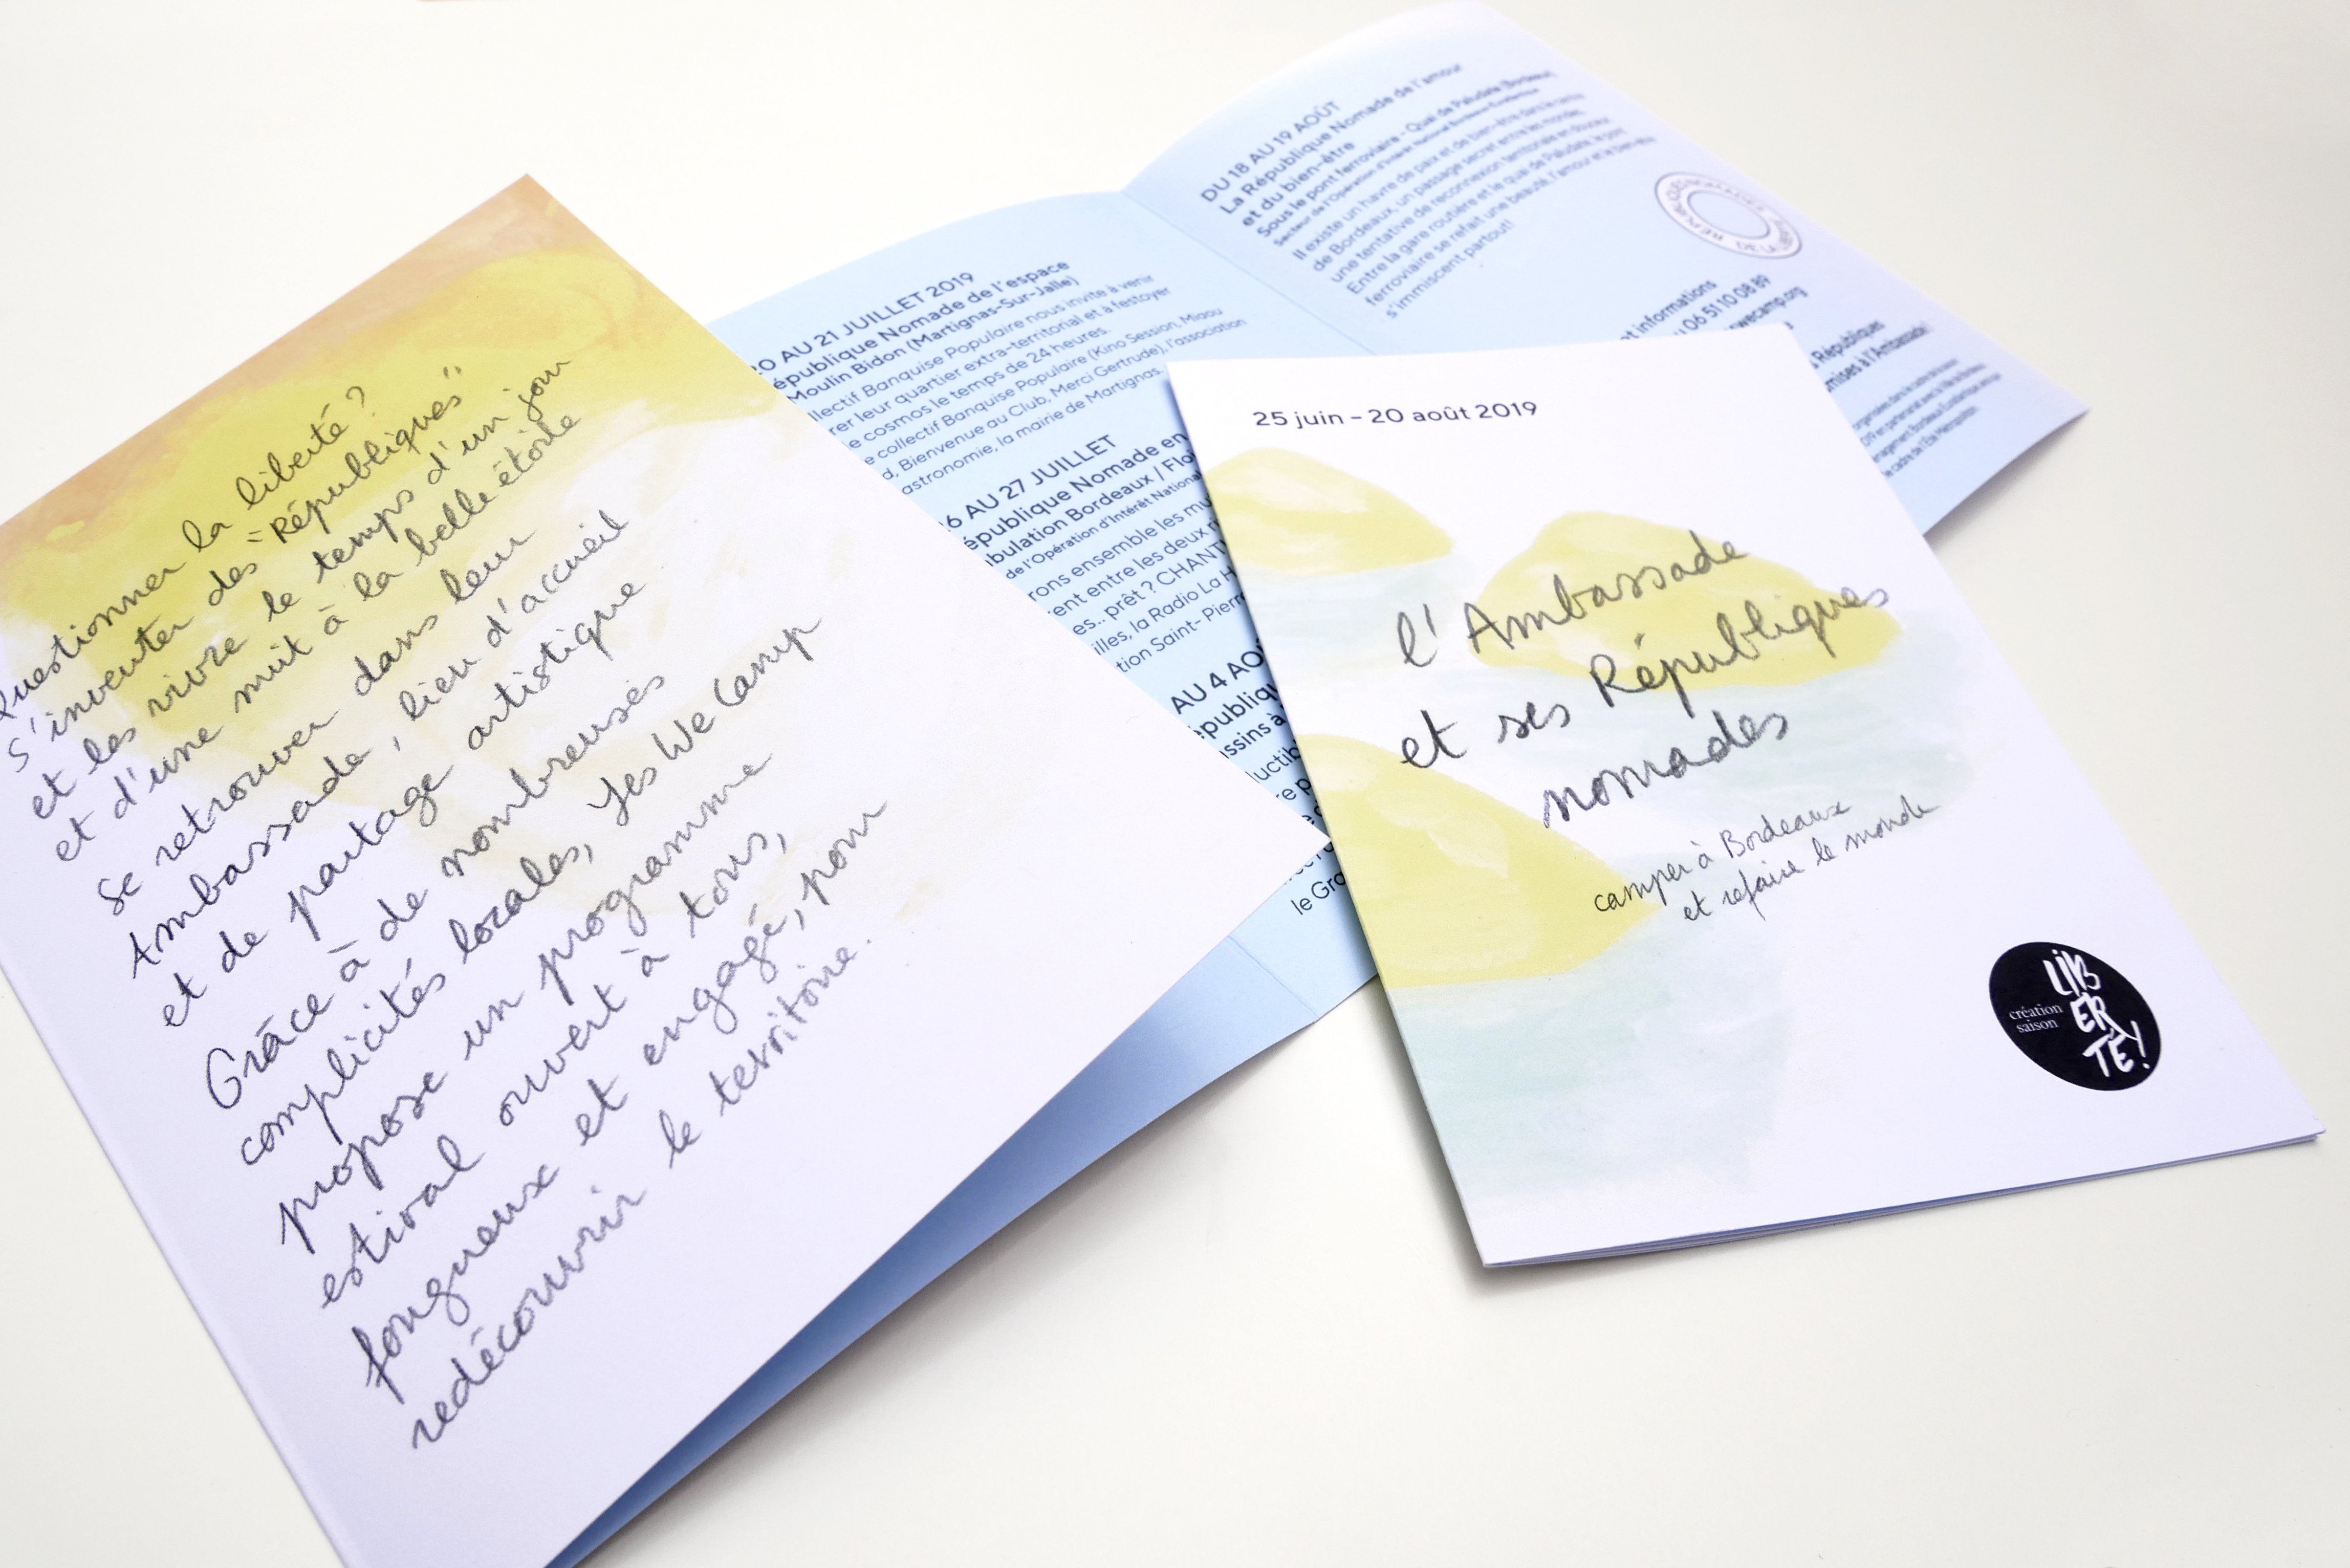 Questionner la liberté?
s'inventer des "Républiques"
et les vivre le temps d'un jour
et d'une nuit à la belle étoile
Se retrouver dans leur
Ambassade, lieu d'accueil
et de partage artistique
Grâce à de nombreuses
complicités locales, Yes We Camp
propose un programme
estival ouvert à tous,
fougueux et engagé, pour
redécouvrir le territoire.
20 AU 21 JUILLET 2019
épublique Nomade de l'espace
Moulin Bidon (Martignas-Sur-Jalle)
llectif Banquise Populaire nous invite à venir
rer leur quartier extra-territorial et à festoyer
e cosmos le temps de 24 heures.
e collectif Banquise Populaire (Kino Session, Miaou
d, Bienvenue au Club, Merci Gertrude), l'association
astronomie, la mairie de Martignas.
6 AU 27 JUILLET
épublique Nomade en
bulation Bordeaux / Floi
de l'Opération d'Intérêt National
rons ensemble les mu
rent entre les deux
es.. prêt ? CHANT
illes, la Radio La H
tion Saint-Pierre
AU 4 AOÛ
épublique
ssins à
uctib
le Gra
DU 18 AU 19 AOÛT
La République Nomade de l'amour
et du bien-être
Sous le pont ferroviaire - Quai de Paludate (Bordeaux)
Secteur de l'Opération d'Intérêt National Bordeaux Euratlantique
Il existe un havre de paix et de bien-être dans le centre
de Bordeaux, un passage secret entre les mondes,
une tentative de reconnexion territoriale en douceur.
Entre la gare routière et le quai de Paludate, le pont
ferroviaire se refait une beauté, l'amour et le bien-être
s'immiscent partout!
et informations
06 51 10 08 89
wecamp.org
Républiques
mises à l'Ambassade!
25 juin – 20 août 2019
l'Ambassade
et ses Républiques
nomades
camper à Bordeaux
et refaire le monde
création
saison
LIB
ER
TÉ!